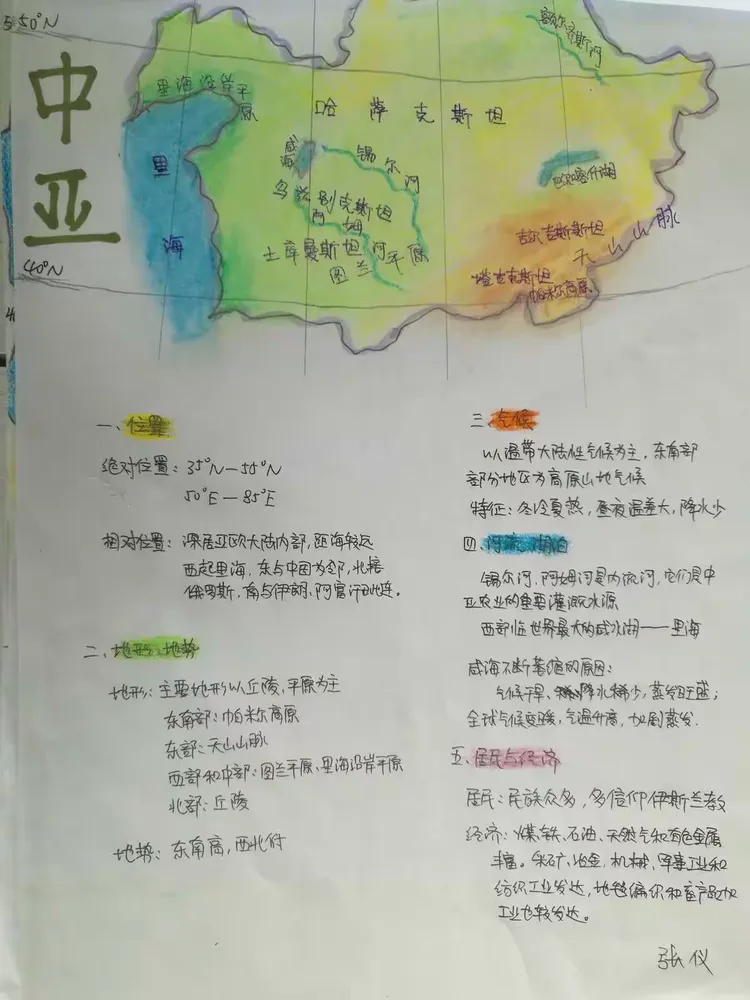 50°N
额尔齐斯河
中亚
里海沿岸平原
哈萨克斯坦
里海
咸海
锡尔河
巴尔喀什湖
乌兹别克斯坦
阿姆河
吉尔吉斯斯坦
天山山脉
土库曼斯坦
图兰平原
塔吉克斯坦
帕米尔高原
40°N
一、位置
绝对位置：35°N—55°N
50°E—85°E
相对位置：深居亚欧大陆内部，距海较远
西起里海，东与中国为邻，北接
俄罗斯，南与伊朗、阿富汗相连。
二、地形、地势
地形：主要地形以丘陵、平原为主
东南部：帕米尔高原
东部：天山山脉
西部和中部：图兰平原、里海沿岸平原
北部：丘陵
地势：东南高，西北低
三、气候
以温带大陆性气候为主，东南部
部分地区为高原山地气候
特征：冬冷夏热，昼夜温差大，降水少
四、河流、湖泊
锡尔河、阿姆河是内流河，它们是中
亚农业的重要灌溉水源
西部临世界最大的咸水湖——里海
咸海不断萎缩的原因：
气候干旱，降水稀少，蒸发旺盛；
全球气候变暖，气温升高，加剧蒸发.
五、居民与经济
居民：民族众多，多信仰伊斯兰教
经济：煤、铁、石油、天然气和有色金属
丰富。采矿、冶金、机械、军事工业和
纺织工业发达，地毯编织和畜产品加
工业也较发达。
张仪